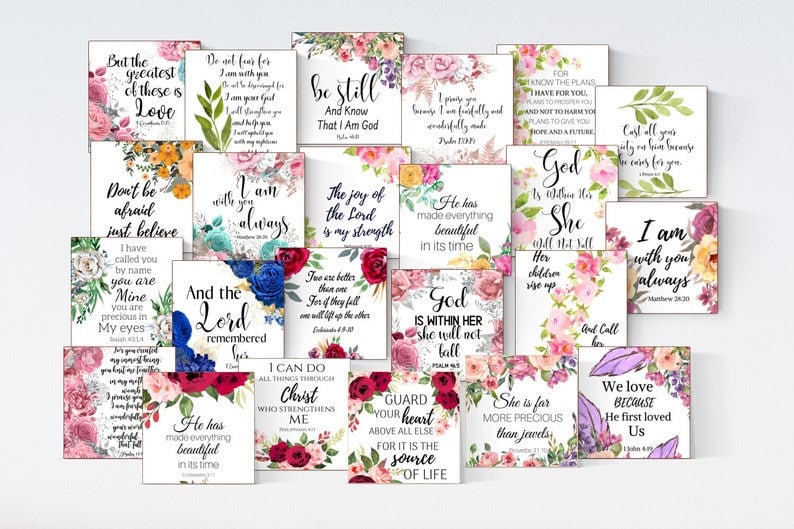 But the
greatest
of these is
Love
1 Corinthians 13:13
Do not fear for
I am with you
Do not be discouraged for
I am your God
I will strengthen you
and help you
I will uphold you
with my righteous
be still
And Know
That I Am God
Psalm 46:10
I praise you
because I am fearfully and
wonderfully made
Psalm 139:14
FOR
I KNOW THE PLANS
I HAVE FOR YOU,
PLANS TO PROSPER YOU
AND NOT TO HARM YOU
PLANS TO GIVE YOU
HOPE AND A FUTURE.
JEREMIAH 29:11
Cast all your
anxiety on him because
he cares for you.
1 Peter 5:7
Don't be
afraid
just believe
I am
with you
always
Matthew 28:20
The joy of
the Lord
is my strength
He has
made everything
beautiful
in its time
God
Is Within Her
She
Will Not Fall
I am
with you
always
Matthew 28:20
I have
called you
by name
you are
Mine
you are
precious in
My eyes
Isaiah 43:1,4
And the
Lord
remembered
her
Two are better
than one
For if they fall
one will lift up the other
Ecclesiastes 4:9-10
God
IS WITHIN HER
she will not
fall
PSALM 46:5
Her
children
rise up
And Call
her
For you created
my inmost being;
you knit me together
in my mother's
womb
I praise you
I am fearfully
wonderfully
your works
wonderful,
that full
He has
made everything
beautiful
in its time
Ecclesiastes 3:11
I CAN DO
ALL THINGS THROUGH
Christ
WHO STRENGTHENS
ME
PHILIPPIANS 4:13
GUARD
YOUR heart
ABOVE ALL ELSE
FOR IT IS THE
source
OF LIFE
She is far
MORE PRECIOUS
than jewels
Proverbs 31:10
We love
BECAUSE
He first loved
Us
1 John 4:19